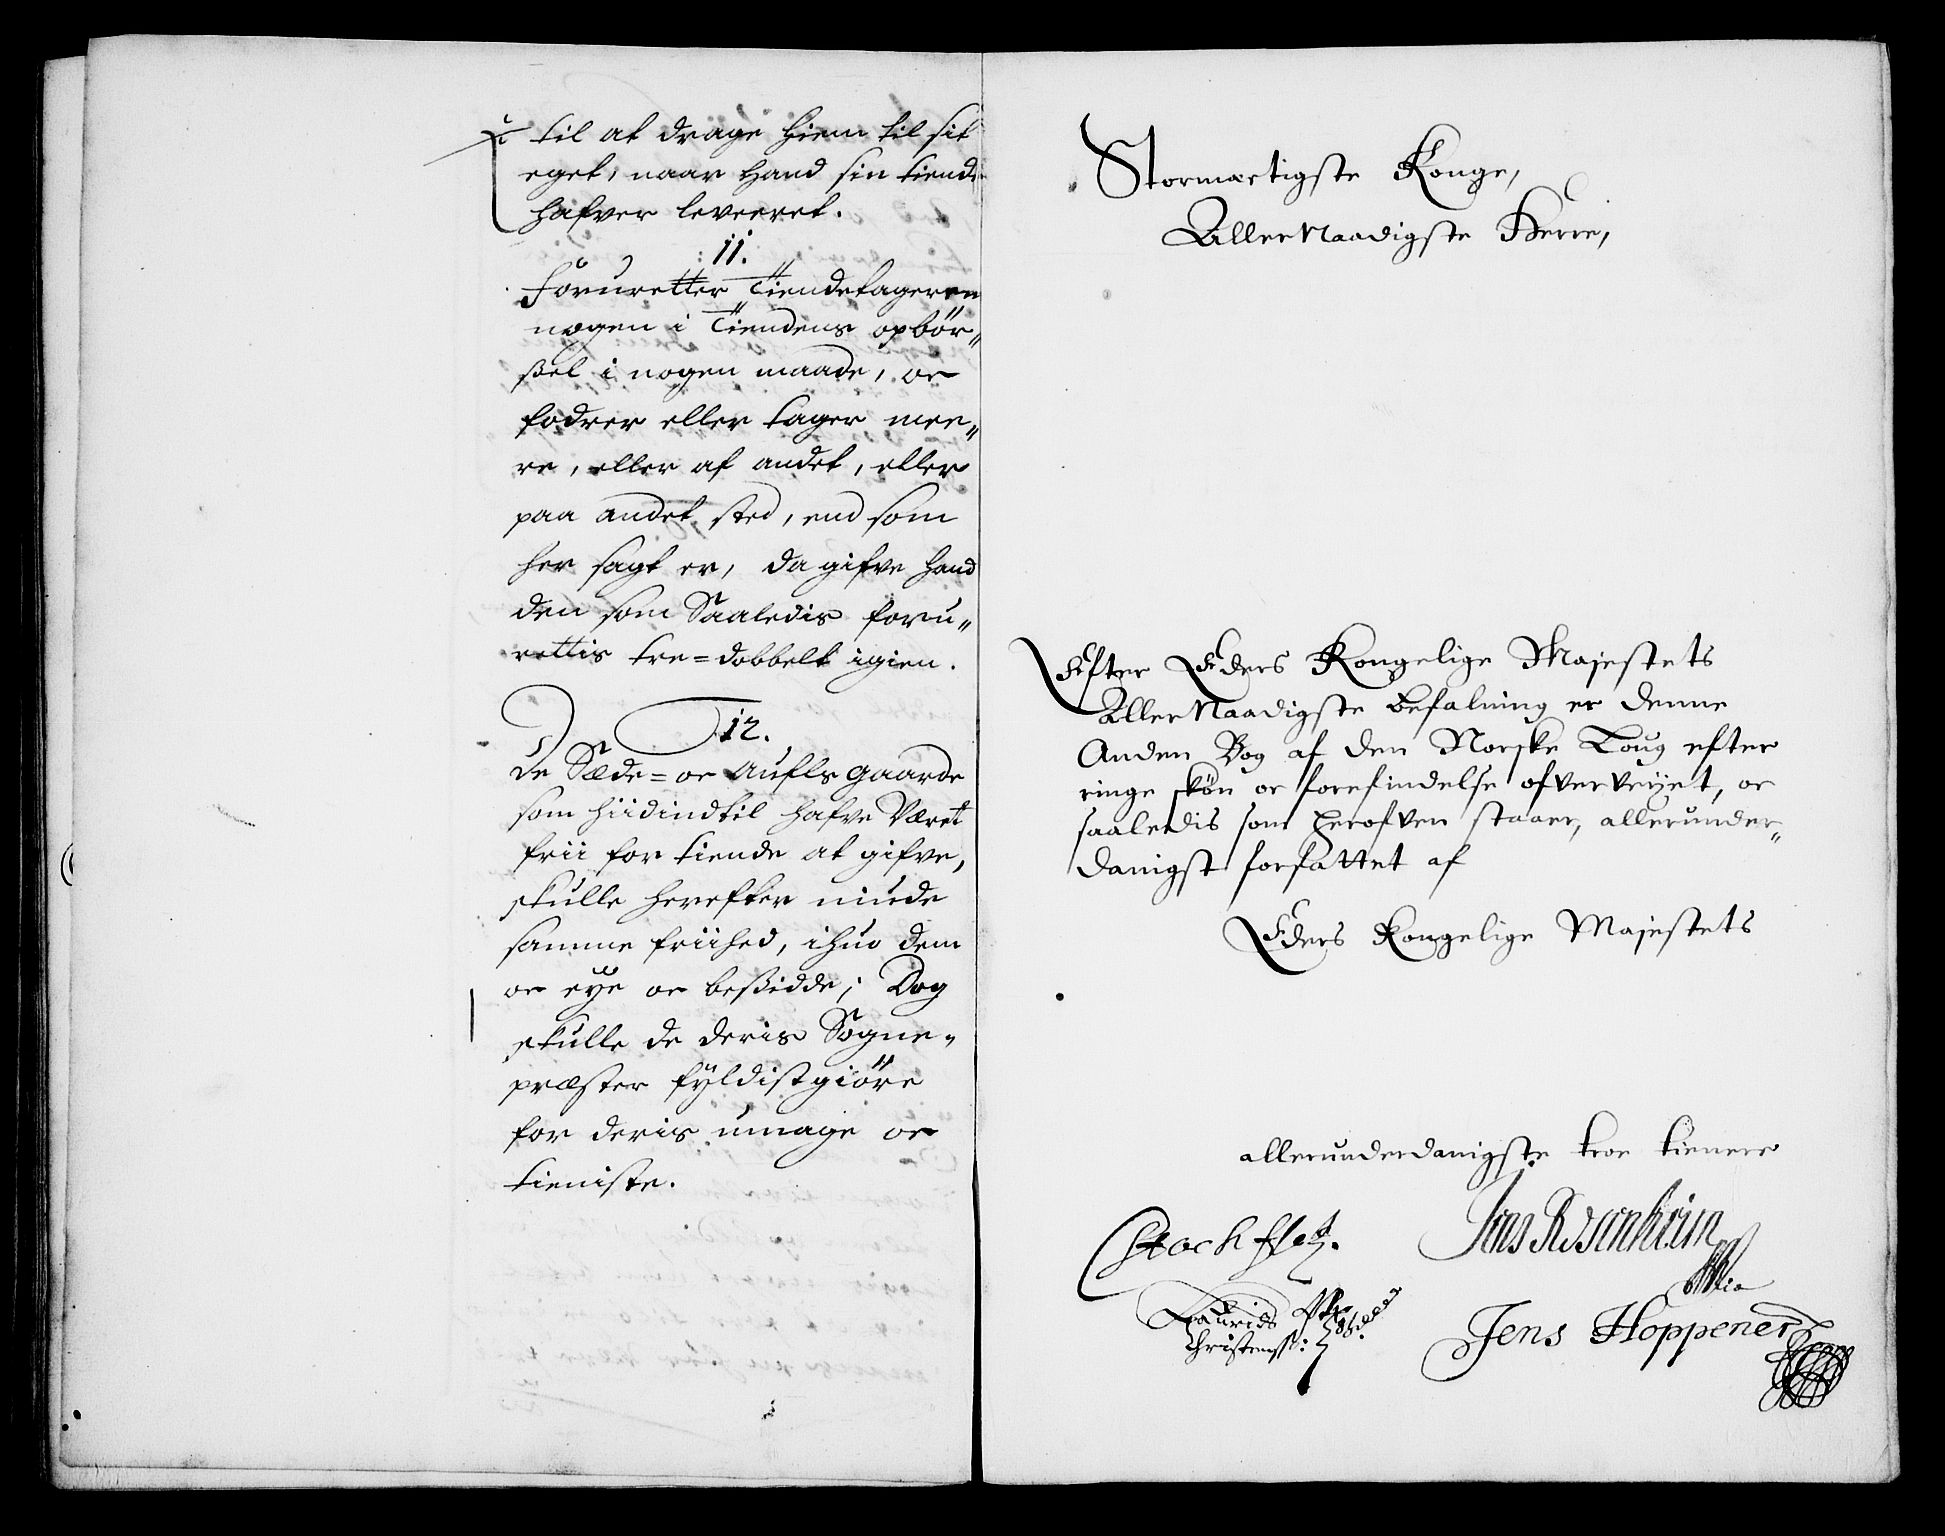 til at drage hiem til sit
eget, naar hand sin tiende
hafver leveeret.
11.
Foruretter Tiendetageren
nogen i Tiendens opbör„
ßel i nogen maade, oc
fodrer eller tager mee„
re, eller af andet, eller
paa andet sted, end som
her sagt er, da gifve hand
den som Saaledis foru„
rettis tre=dobbelt igien.
12.
De Sæde= oc Aufls gaarde
som hiidindtil hafve Været
frii for tiende at gifve,
skulle herefter niude
samme friihed, ihuo dem
oc eye oc beßidde; Dog
skulle de deris Sogne„
præster fyldistgiöre
for deris umage oc
tieniste.
Stormectigste Konge,
AllerNaadigste Herre,
Efter Eders Kongelige Majestets
AllerNaadigste befalning er denne
Anden Bog af den Norske Loug efter
ringe skön oc forefindelse ofverveyet, oc
saaledis som herofven staaer, allerunder„
danigst forfattet af
Eders Kongelige Majestets
allerunderdanigste troe tienere
Stockfle
Jens Rosenheim
Laurids
Christenss:
Jens Hoppener